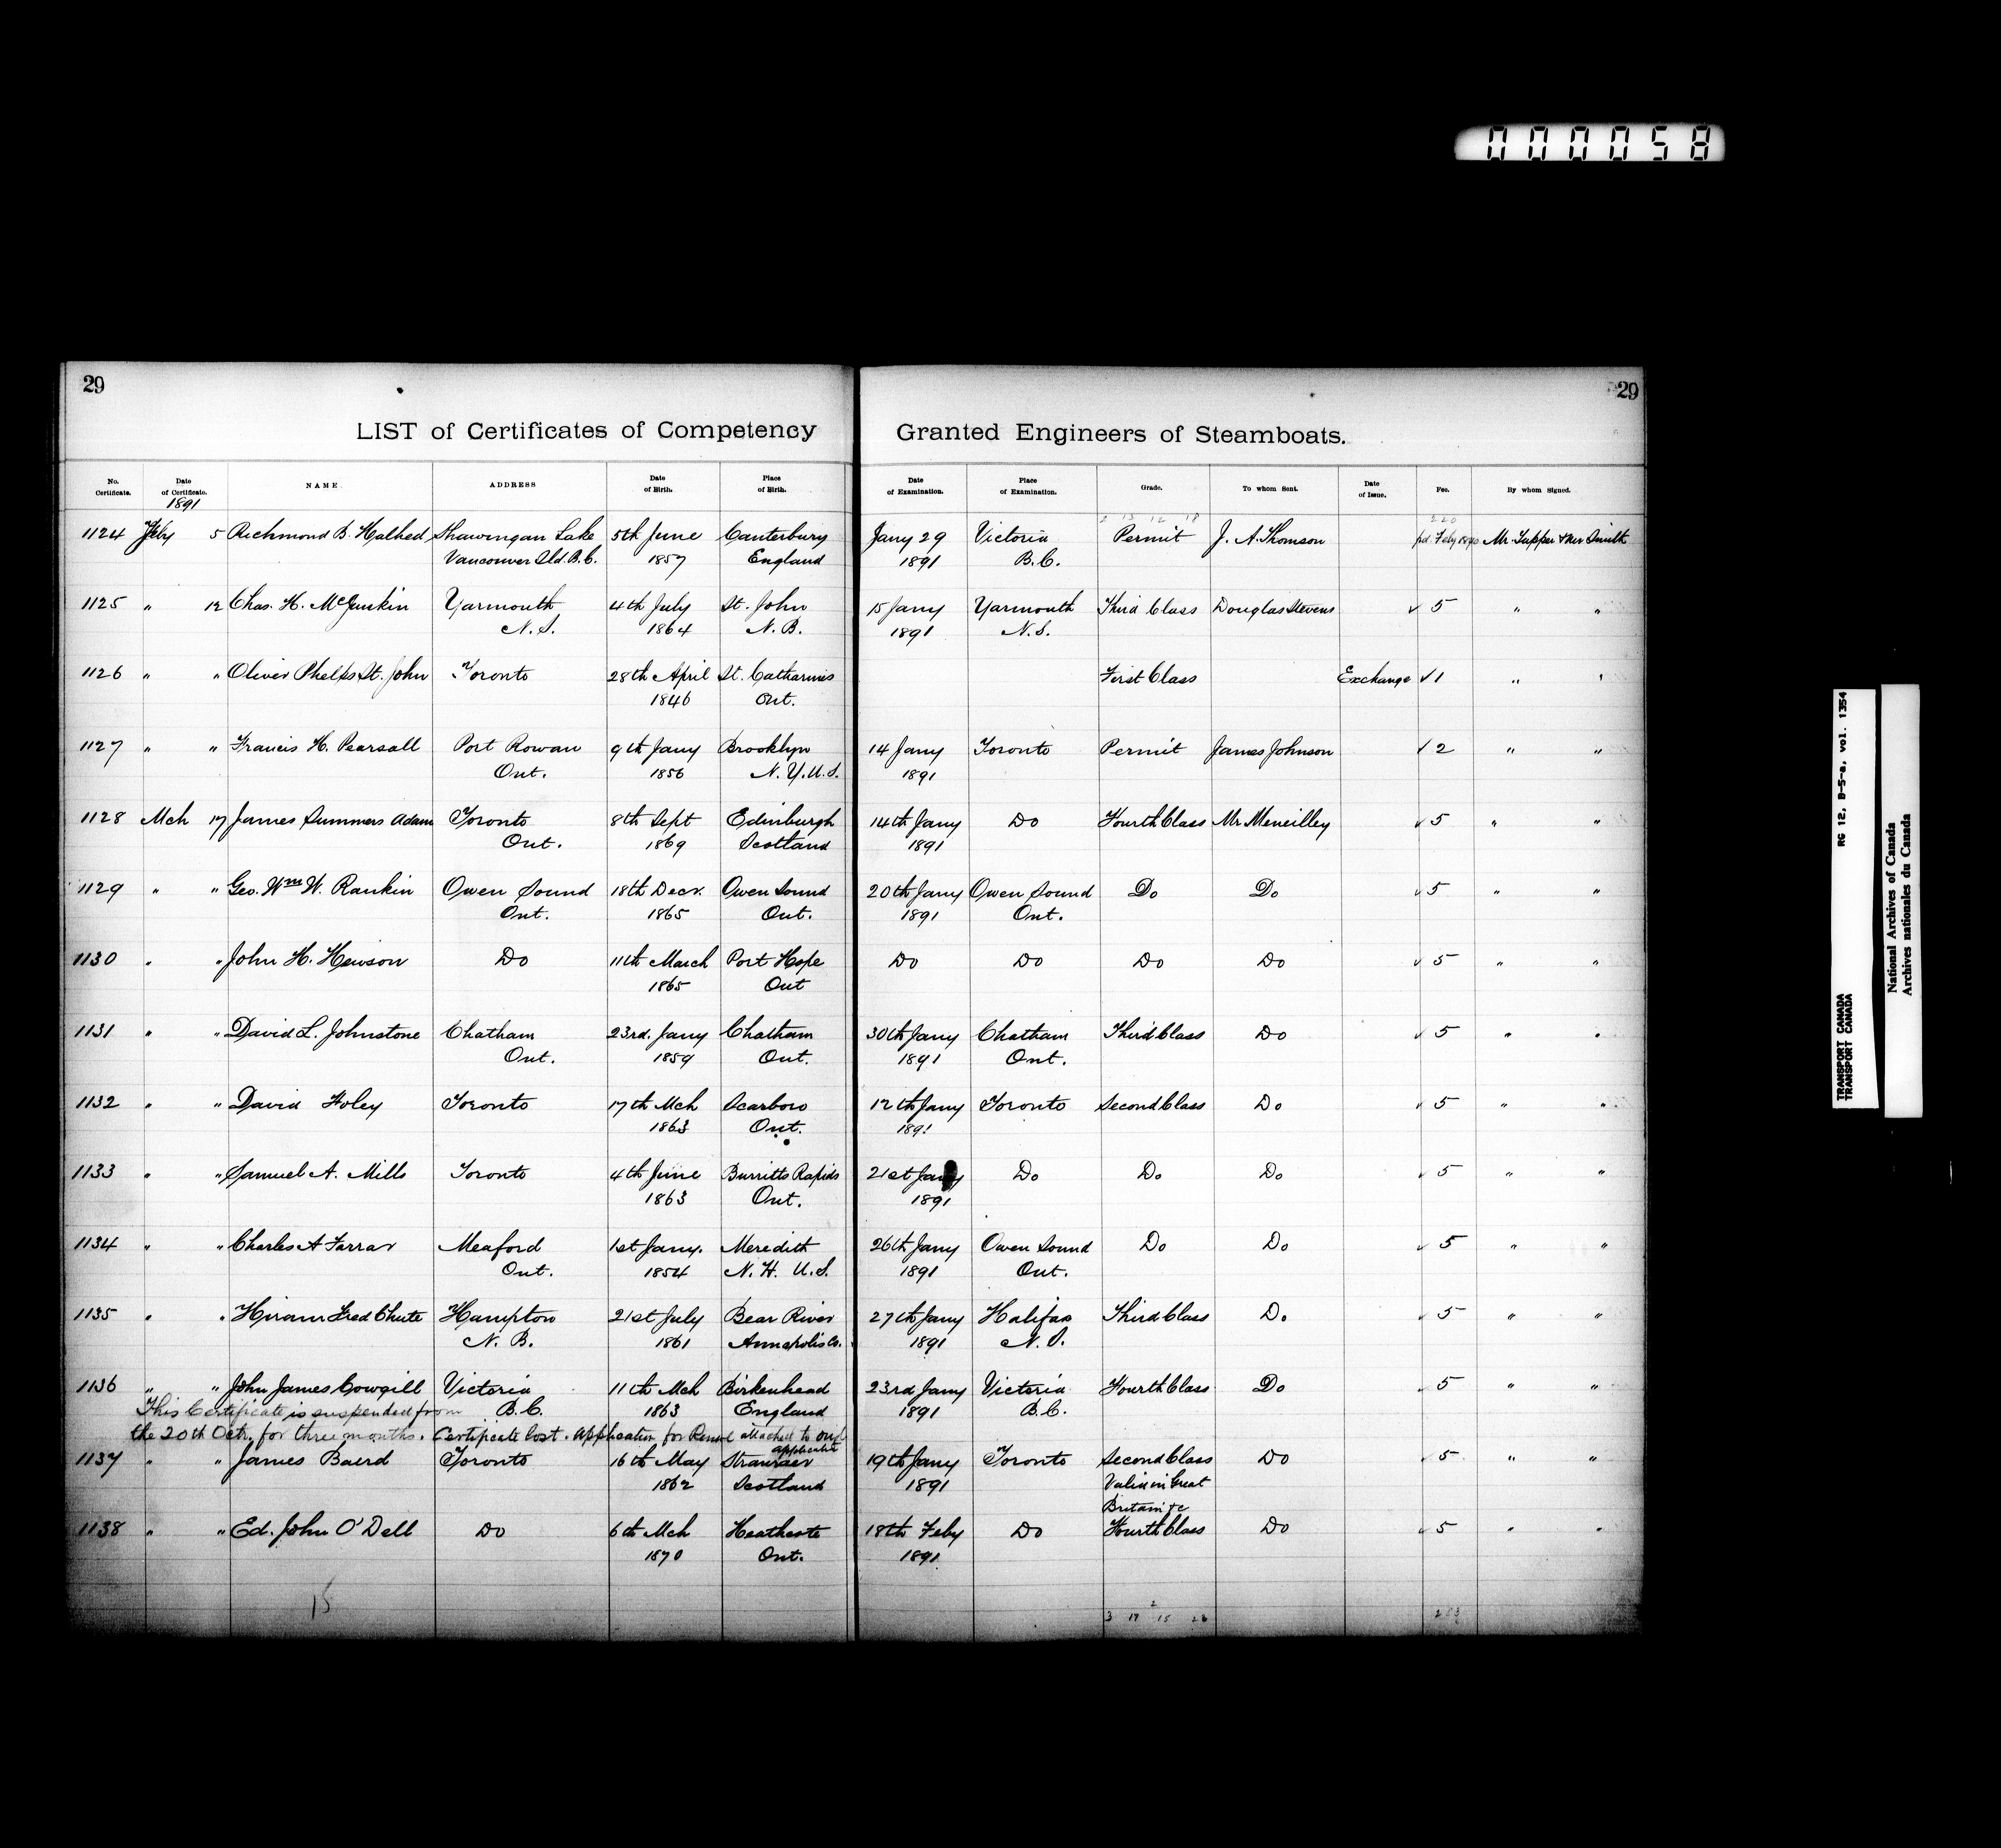 000058
29
29
LIST of Certificates of Competency Granted Engineers of Steamboats.
No. Certificate. Date of Certificate. NAME. ADDRESS Date of Birth. Place of Birth. Date of Examination. Place of Examination. Grade. To whom Sent. Date of Issue. Fee. By whom Signed.
1891
2 13 12 18 220
1124 Feby 5 Richmond B. Halhed Shawingan Lake 5th June Canterbury Jany 29 Victoria Permit J. A. Thomson pd. Feby 1890 Mr. Tupper & Mr Smith
Vancouver Ild. B.C. 1857 England 1891 B.C.
1125 " 12 Chas. H. McGuskin Yarmouth 4th July St. John 15 Jany Yarmouth Third Class Douglas Stevens ✓ 5 " "
N.S. 1864 N.B. 1891 N.S.
1126 " " Oliver Phelps St. John Toronto 28th April St. Catharines First Class Exchange ✓ 1 " "
1846 Ont.
1127 " " Francis H. Pearsall Port Rowan 9th Jany Brooklyn 14 Jany Toronto Permit James Johnson ✓ 2 " "
Ont. 1856 N.Y.U.S. 1891
1128 Mch 17 James Summers Adam Toronto 8th Sept Edinburgh 14th Jany Do Fourth Class Mr Meneilley ✓ 5 " "
Ont. 1869 Scotland 1891
1129 " " Geo. Wm W. Rankin Owen Sound 18th Decr. Owen Sound 20th Jany Owen Sound Do Do ✓ 5 " "
Ont. 1865 Ont. 1891 Ont.
1130 " " John H. Hewson Do 11th March Port Hope Do Do Do Do ✓ 5 " "
1865 Ont
1131 " " David L. Johnstone Chatham 23rd. Jany Chatham 30th Jany Chatham Third Class Do ✓ 5 " "
Ont. 1859 Ont. 1891 Ont.
1132 " " David Foley Toronto 17th Mch Scarboro 12th Jany Toronto Second Class Do ✓ 5 " "
1863 Ont. 1891
1133 " " Samuel A. Mills Toronto 4th June Burritts Rapids 21st Jany Do Do Do ✓ 5 " "
1863 Ont. 1891
1134 " " Charles A Farrar Meaford 1st Jany. Meredith 26th Jany Owen Sound Do Do ✓ 5 " "
Ont. 1854 N.H. U.S. 1891 Ont.
1135 " " Hiram Fred Chute Hampton 21st July Bear River 27th Jany Halifax Third Class Do ✓ 5 " "
N.B. 1861 Annapolis Co. 1891 N.S.
1136 " " John James Cowgill Victoria 11th Mch Birkenhead 23rd Jany Victoria Fourth Class Do ✓ 5 " "
This Certificate is suspended from B.C. 1863 England 1891 B.C.
the 20th Octr. for three months. Certificate lost. Application for Renewl attached to origl
application
1137 " " James Baerd Toronto 16th May Stranraer 19th Jany Toronto Second Class Do ✓ 5 " "
1862 Scotland 1891 Valid in Great
Britain &c
1138 " " Ed. John O'Dell Do 6th Mch Heathcote 18th Feby Do Fourth Class Do ✓ 5 " "
1870 Ont. 1891
15
3 17 2 15 26
RG 12, B-5-a, vol. 1354
TRANSPORT CANADA
TRANSPORT CANADA
National Archives of Canada
Archives nationales du Canada